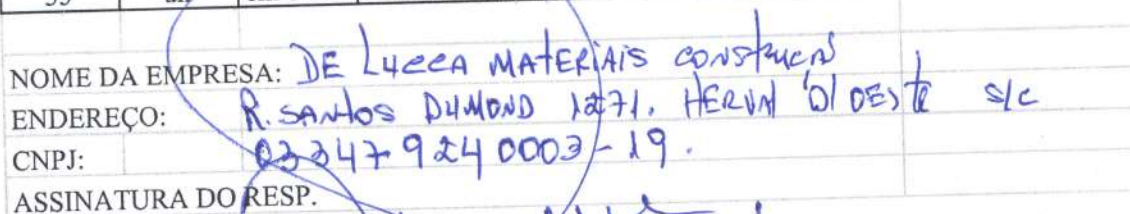 NOME DA EMPRESA: DE LUCCA MATERIAIS CONSTRUCAO
ENDEREÇO: R. SANTOS DUMOND 1271. HERVAL D'OESTE S/C
CNPJ: 03347924 0003-19.
ASSINATURA DO RESP.